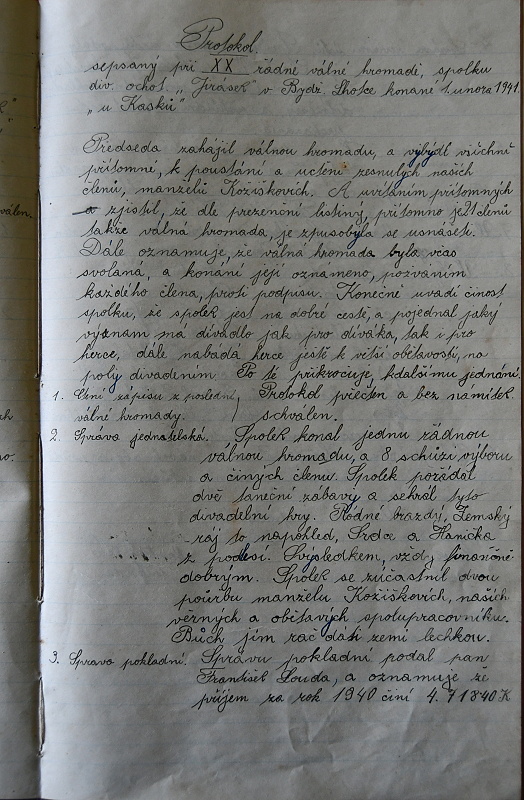 Protokol.
sepsaný při XX řádné válné hromadě, spolku
div. ochot. „Jirásek" v Bydž. Lhotce konané 1. února 1941.
„u Kasků"
Předseda zahájil válnou hromadu, a vybýdl všechně
přítomné, k poustání a uctění zesnulých našich
členů, manželů Kozíškovích. A uvítáním přítomných
a zjistil, že dle prezenční listiny, přítomno je členů
takže válná hromada, je zpusobyla se usnášeti.
Dále oznamuje, že válná hromada byla včas
svolaná, a konání její oznámeno, pozváním
každého člena, proti podpisu. Konečně uvadí činost
spolku, že spolek jest na dobré cestě, a pojednal jaký
význam má divadlo jak pro diváka, tak i pro
herce, dále nabádá herce jestě k větší obětavosti, na
poly divadením. Po té přikročuje, kdalšímu jednání.
1. Čtní zápisu z poslední / Protokol přečten a bez námitek
válné hromady. / schválen.
2. Správa jednatelská. Spolek konal jednu řádnou
válnou hromadu, a 8 schůzí výboru
a činých členu. Spolek pořádal
dvě taneční zábavy a sehrál tyto
divadelní hry. Rodné brazdy, Zemský
ráj to napohled, Srdce a Hanička
z podlesí. Svýsledkem, vždy finančně
dobrým. Spolek se zúčastnil dvou
pohřbu manželu Kozíškovích, našich
věrných a obětavých spolupracovníku.
Bůch jim rač dáti zemi lechkou.
3. Sprava pokladní. Správu pokladní podal pan
František Louda, a oznamuje že
příjem za rok 1940 činí 4.718 40 K